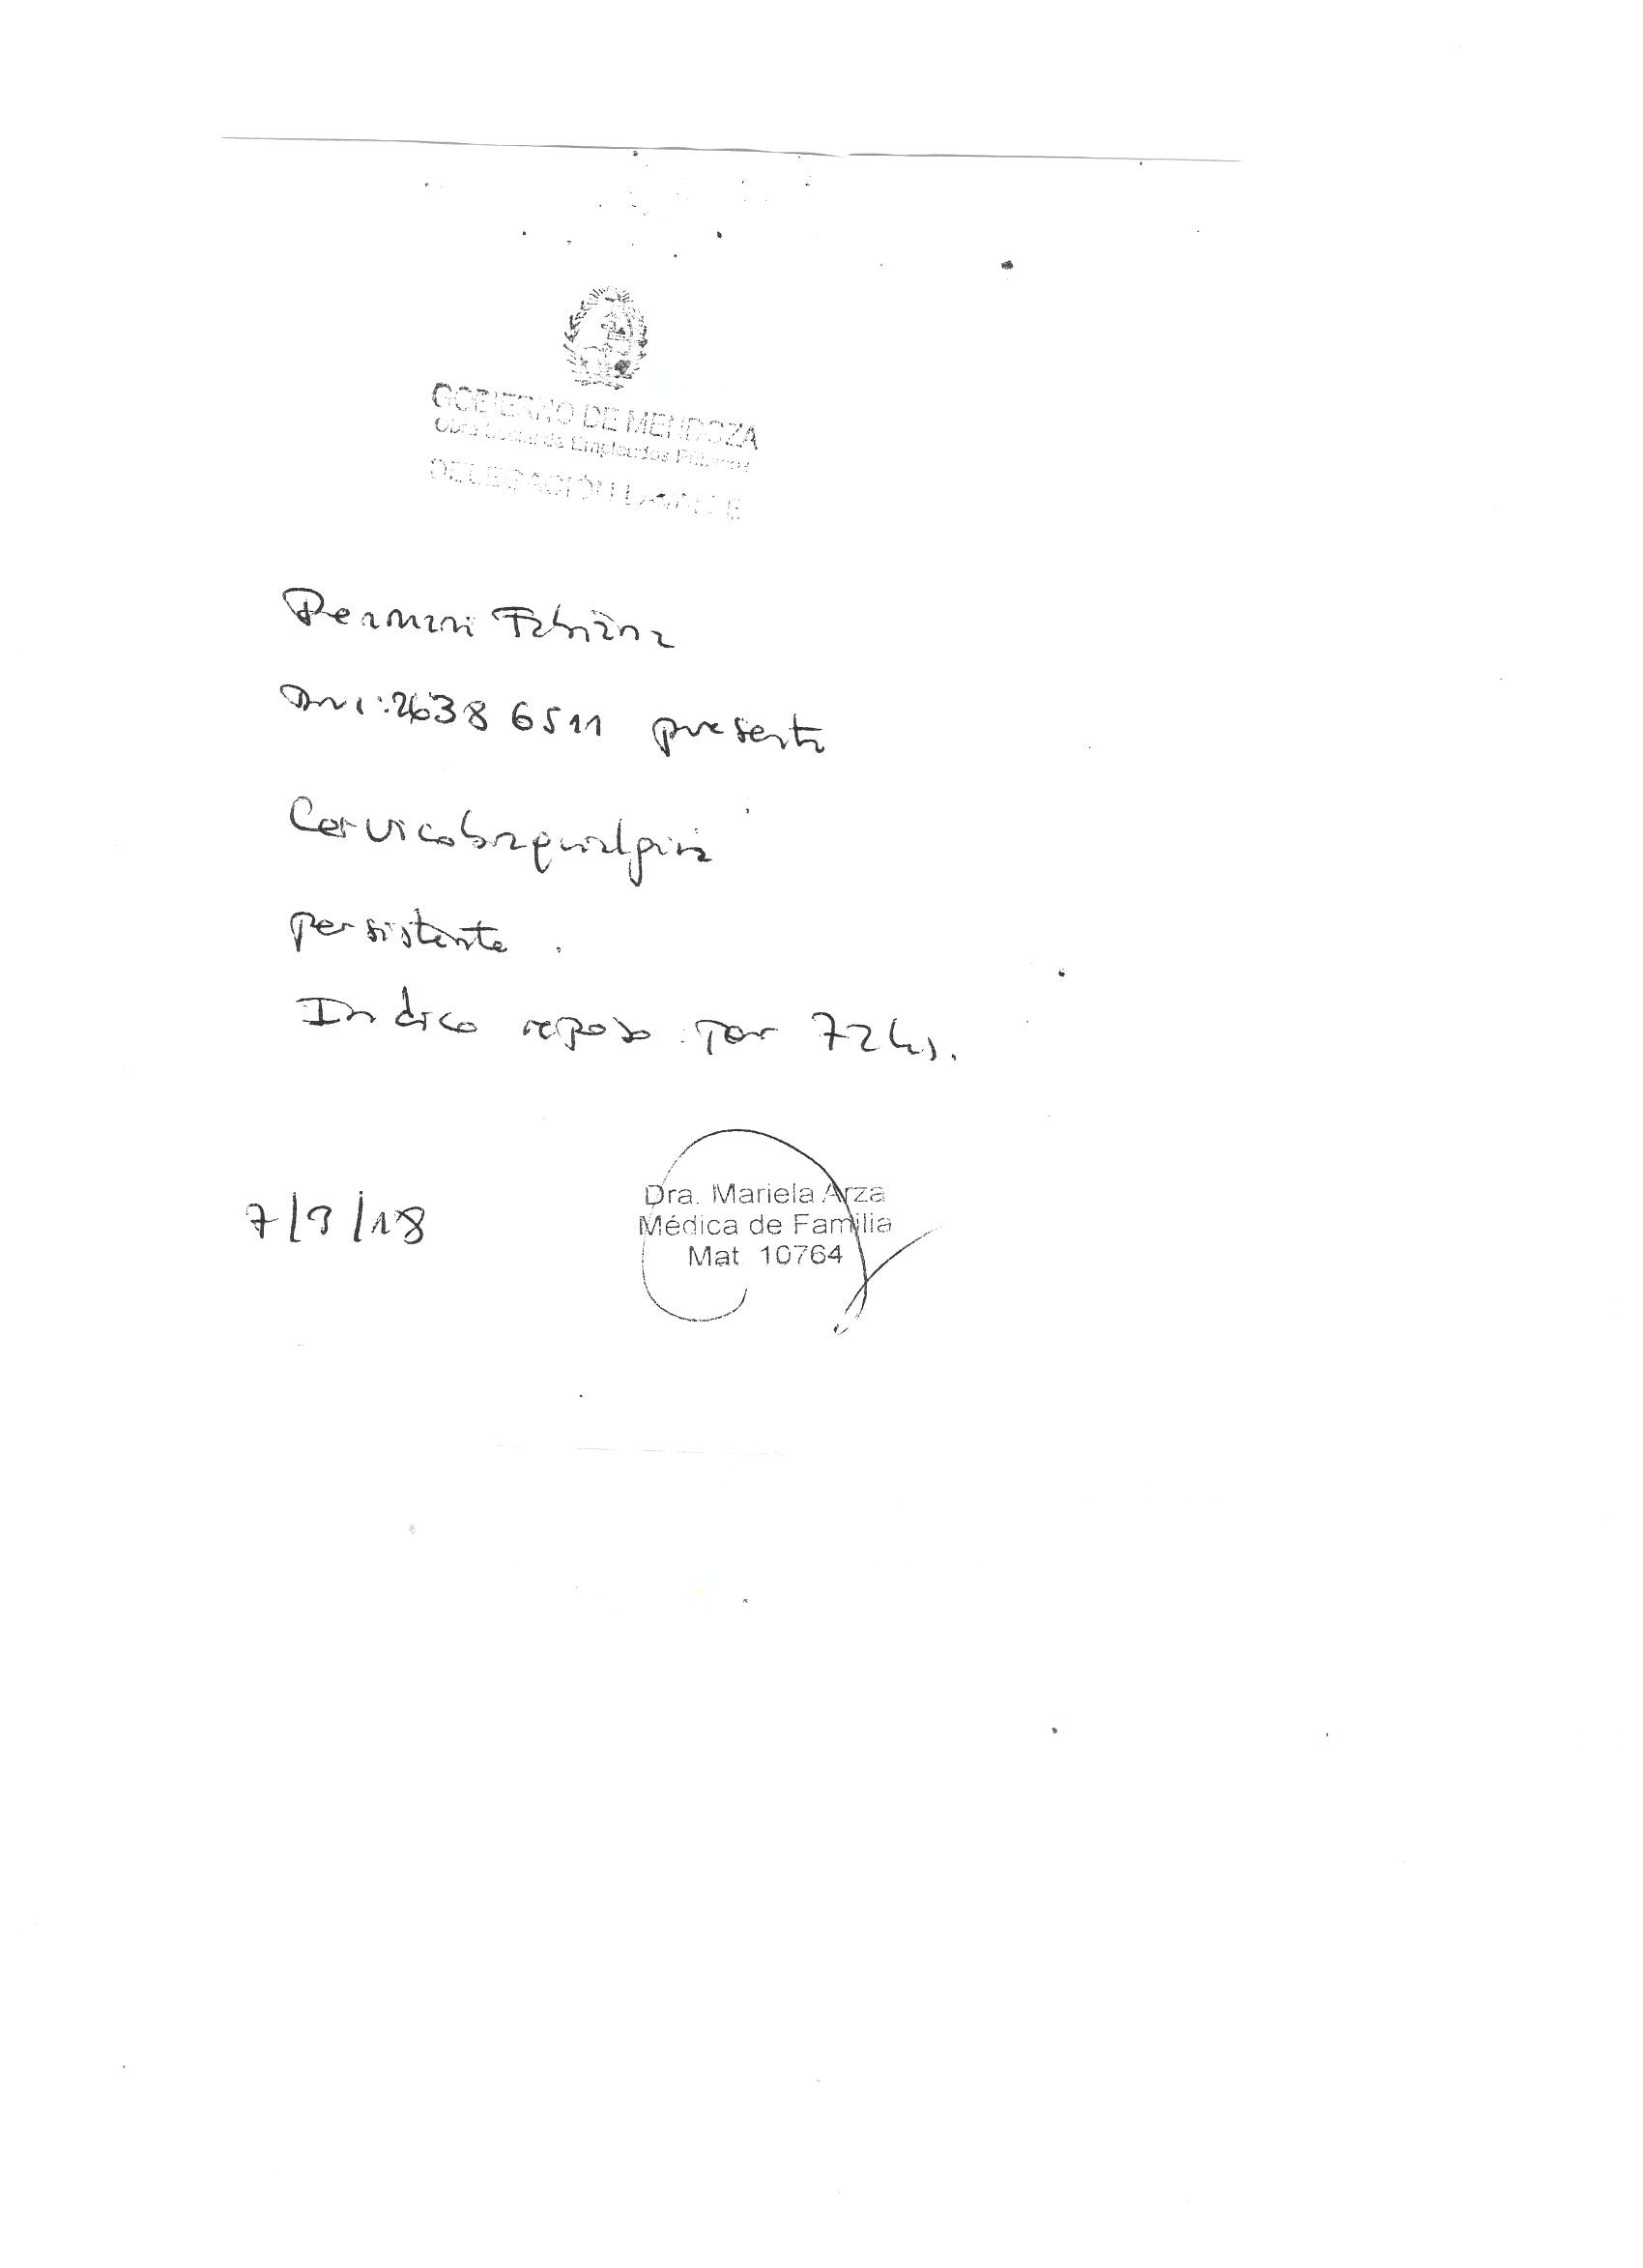 GOBIERNO DE MENDOZA
Obra Social de Empleados Públicos
DELEGACIÓN
Fabiana
DNI: 26386511 presenta
Cervicobraquialgia
persistente.
Indico reposo por 72 hs.
7/3/18
Dra. Mariela Arza
Médica de Familia
Mat 10764